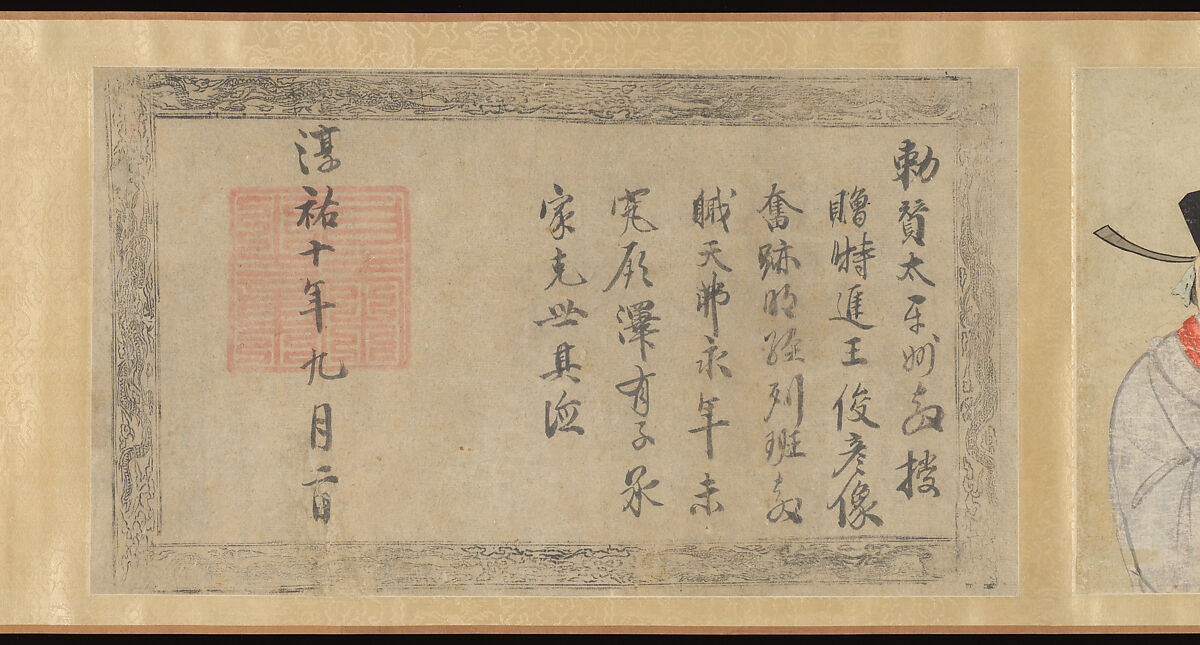 勅贊太平州教授
贈特進王俊彥像
奮跡明經列班教
職天弗永年未
究厥澤有子承
家克世其
淳祐十年九月二日